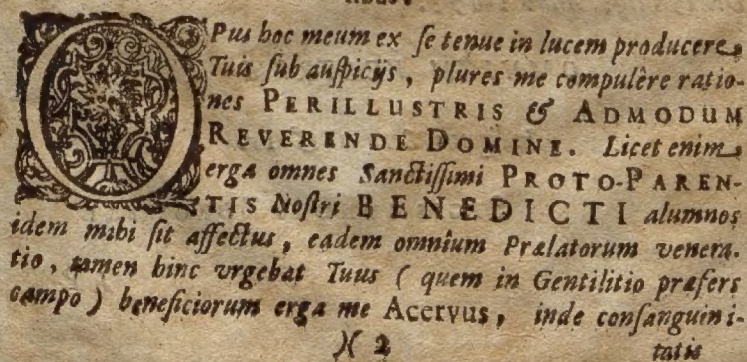 OPus hoc meum ex se tenue in lucem producere
Tuis sub auspicijs, plures me compulêre ratio-
nes PERILLUSTRIS & ADMODUM
REVERENDE DOMINE. Licet enim
erga omnes Sanctissimi PROTO-PAREN-
TIS Nostri BENEDICTI alumnos
idem mihi sit affectus, eadem omnium Prælatorum venera-
tio, tamen hinc vrgebat Tuus ( quem in Gentilitio præfers
campo ) beneficiorum erga me Acervus, inde consanguini-
)( 2
tatis